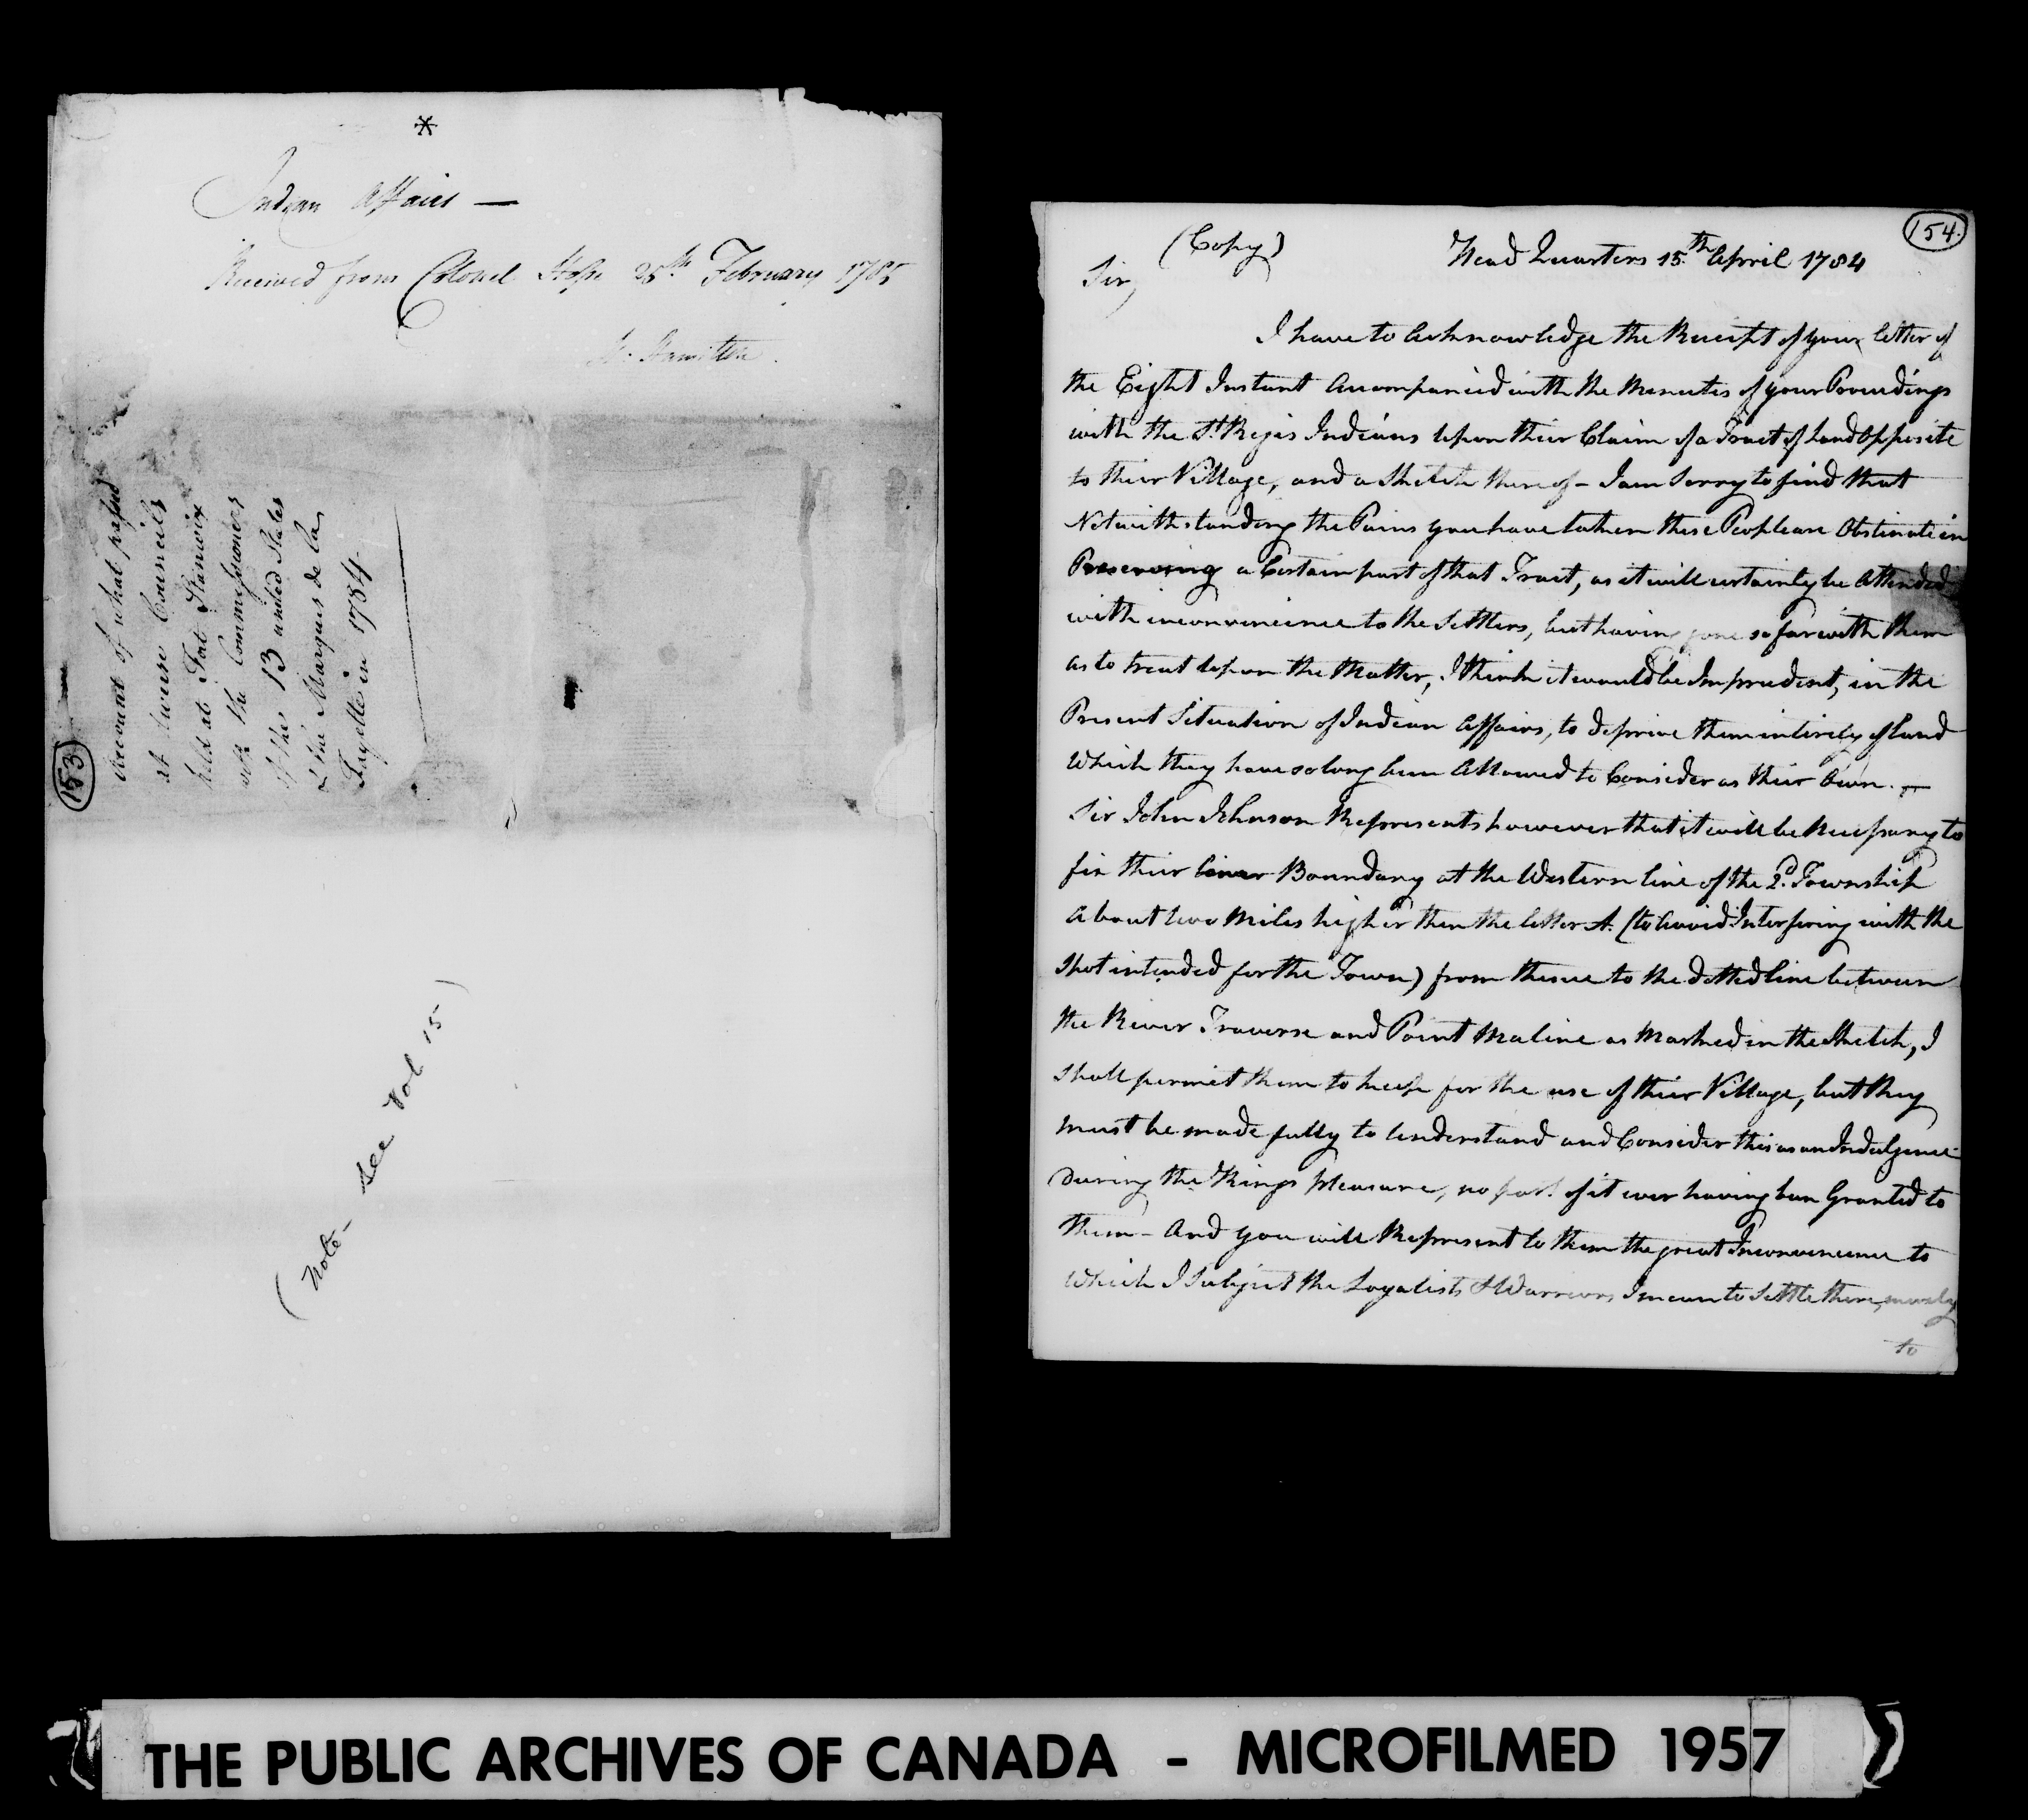 *
Indian Affairs —
Received from Colonel Hope 25th February 1785
H. Hamilton.
153
Account of what passed
at twese Councils
held at Fort Stanwix
with the Commissioners
of the 13 united States
& the Marquis de la
Fayette in 1784.
(Note - see Vol 15)
154.
(Copy) Head Quarters 15.th April 1784
Sir,
I have to Acknowledge the Receipt of your letter of
the Eight Instant Accompanied with the Minutes of your Proceedings
with the St Regis Indians Upon their Claim of a Tract of Land Opposite
to their Village, and a Sketch thereof - I am Sorry to find that
Notwithstanding the Pains you have taken these People are Obstinate in
Preserving a Certain part of that Tract, as it will certainly be Attended
with inconvenience to the Settlers, but having gone so far with them
as to treat Upon the Matter, I think it would be Imprudent, in the
Present Situation of Indian Affairs, to deprive them intirely of Land
Which they have so long been Allowed to Consider as their Own. —
Sir John Johnson Represents however that it will be Necessary to
fix their Boundary at the Western line of the 2d. Township
About two Miles higher then the letter A. (to Avoid Interfering with the
Spot intended for the Town) from thence to the dotted line between
the River Traverse and Point Maline as Marked in the Sketch, I
Shall permit them to keep for the use of their Village, but they
Must be made fully to Understand and Consider this as an Indulgence
During the Kings Pleasure, no part of it ever having been Granted to
them - And you will Represent to them the great Inconvenience to
Which I Subject the Loyalists & Warriors I mean to Settle there, merely
to
THE PUBLIC ARCHIVES OF CANADA - MICROFILMED 1957